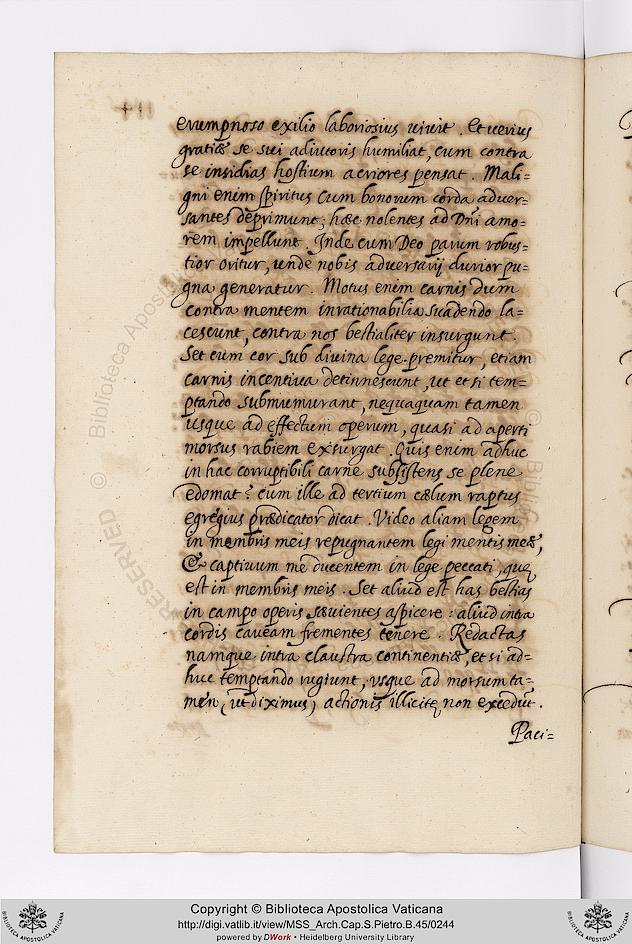 erumpnoso exilio laboriosius viuit. Et verius
gratiæ se sui adiutoris humiliat, cum contra
se insidias hostium acriores pensat. Mali=
gni enim spiritus cum bonorum corda aduer=
santes deprimunt; hæc nolentes ad Dñi amo=
rem impellunt. Inde cum Deo parum robus=
tior oritur, unde nobis adversarij durior pu=
gna generatur. Motus enim carnis dum
contra mentem inrationabilia suadendo la=
cescunt, contra nos bestialiter insurgunt.
Set cum cor sub divina lege premitur, etiam
carnis incentiva detinnescunt, ut et si tem=
ptando submumurant, nequaquam tamen
usque ad effectum operum, quasi ad aperti
morsus rabiem exsurgat. Quis enim adhuc
in hac corruptibili carne subsistens se plene
edomat? cum ille ad tertium cælum raptus
egregius prædicator dicat. Video aliam legem
in membris meis repugnantem legi mentis meæ,
& captivum me ducentem in lege peccati, quę
est in membris meis. Set aliud est has bestias
in campo operis sævientes aspicere: aliud intra
cordis caveam frementes tenere. Redactas
namque intra claustra continentiæ, et si ad=
huc temptando rugiunt, vsque ad morsum ta=
men, (ut diximus) actionis illicitę non excedũt.
Paci=
© Biblioteca Apostolica
RESERVED ©
© Bibliot
Copyright © Biblioteca Apostolica Vaticana
http://digi.vatlib.it/view/MSS_Arch.Cap.S.Pietro.B.45/0244
powered by DWork • Heidelberg University Library